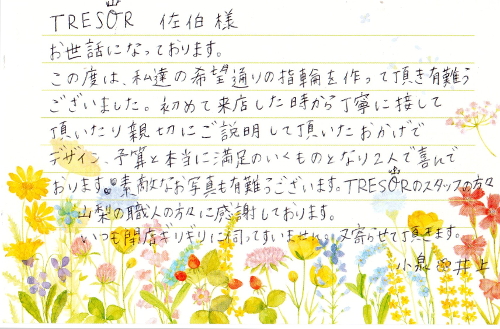 TRESOR 佐伯様
お世話になっております。
この度は、私達の希望通りの指輪を作って頂き有難う
ございました。初めて来店した時から丁寧に接して
頂いたり親切にご説明して頂いたおかげで
デザイン、予算と本当に満足のいくものとなり2人で喜んで
おります。素敵なお写真も有難うございます。TRESORのスタッフの方々
山梨の職人の方々に感謝しております。
いつも閉店ギリギリに伺ってすいません。又寄らせて頂きます。
小泉 井上